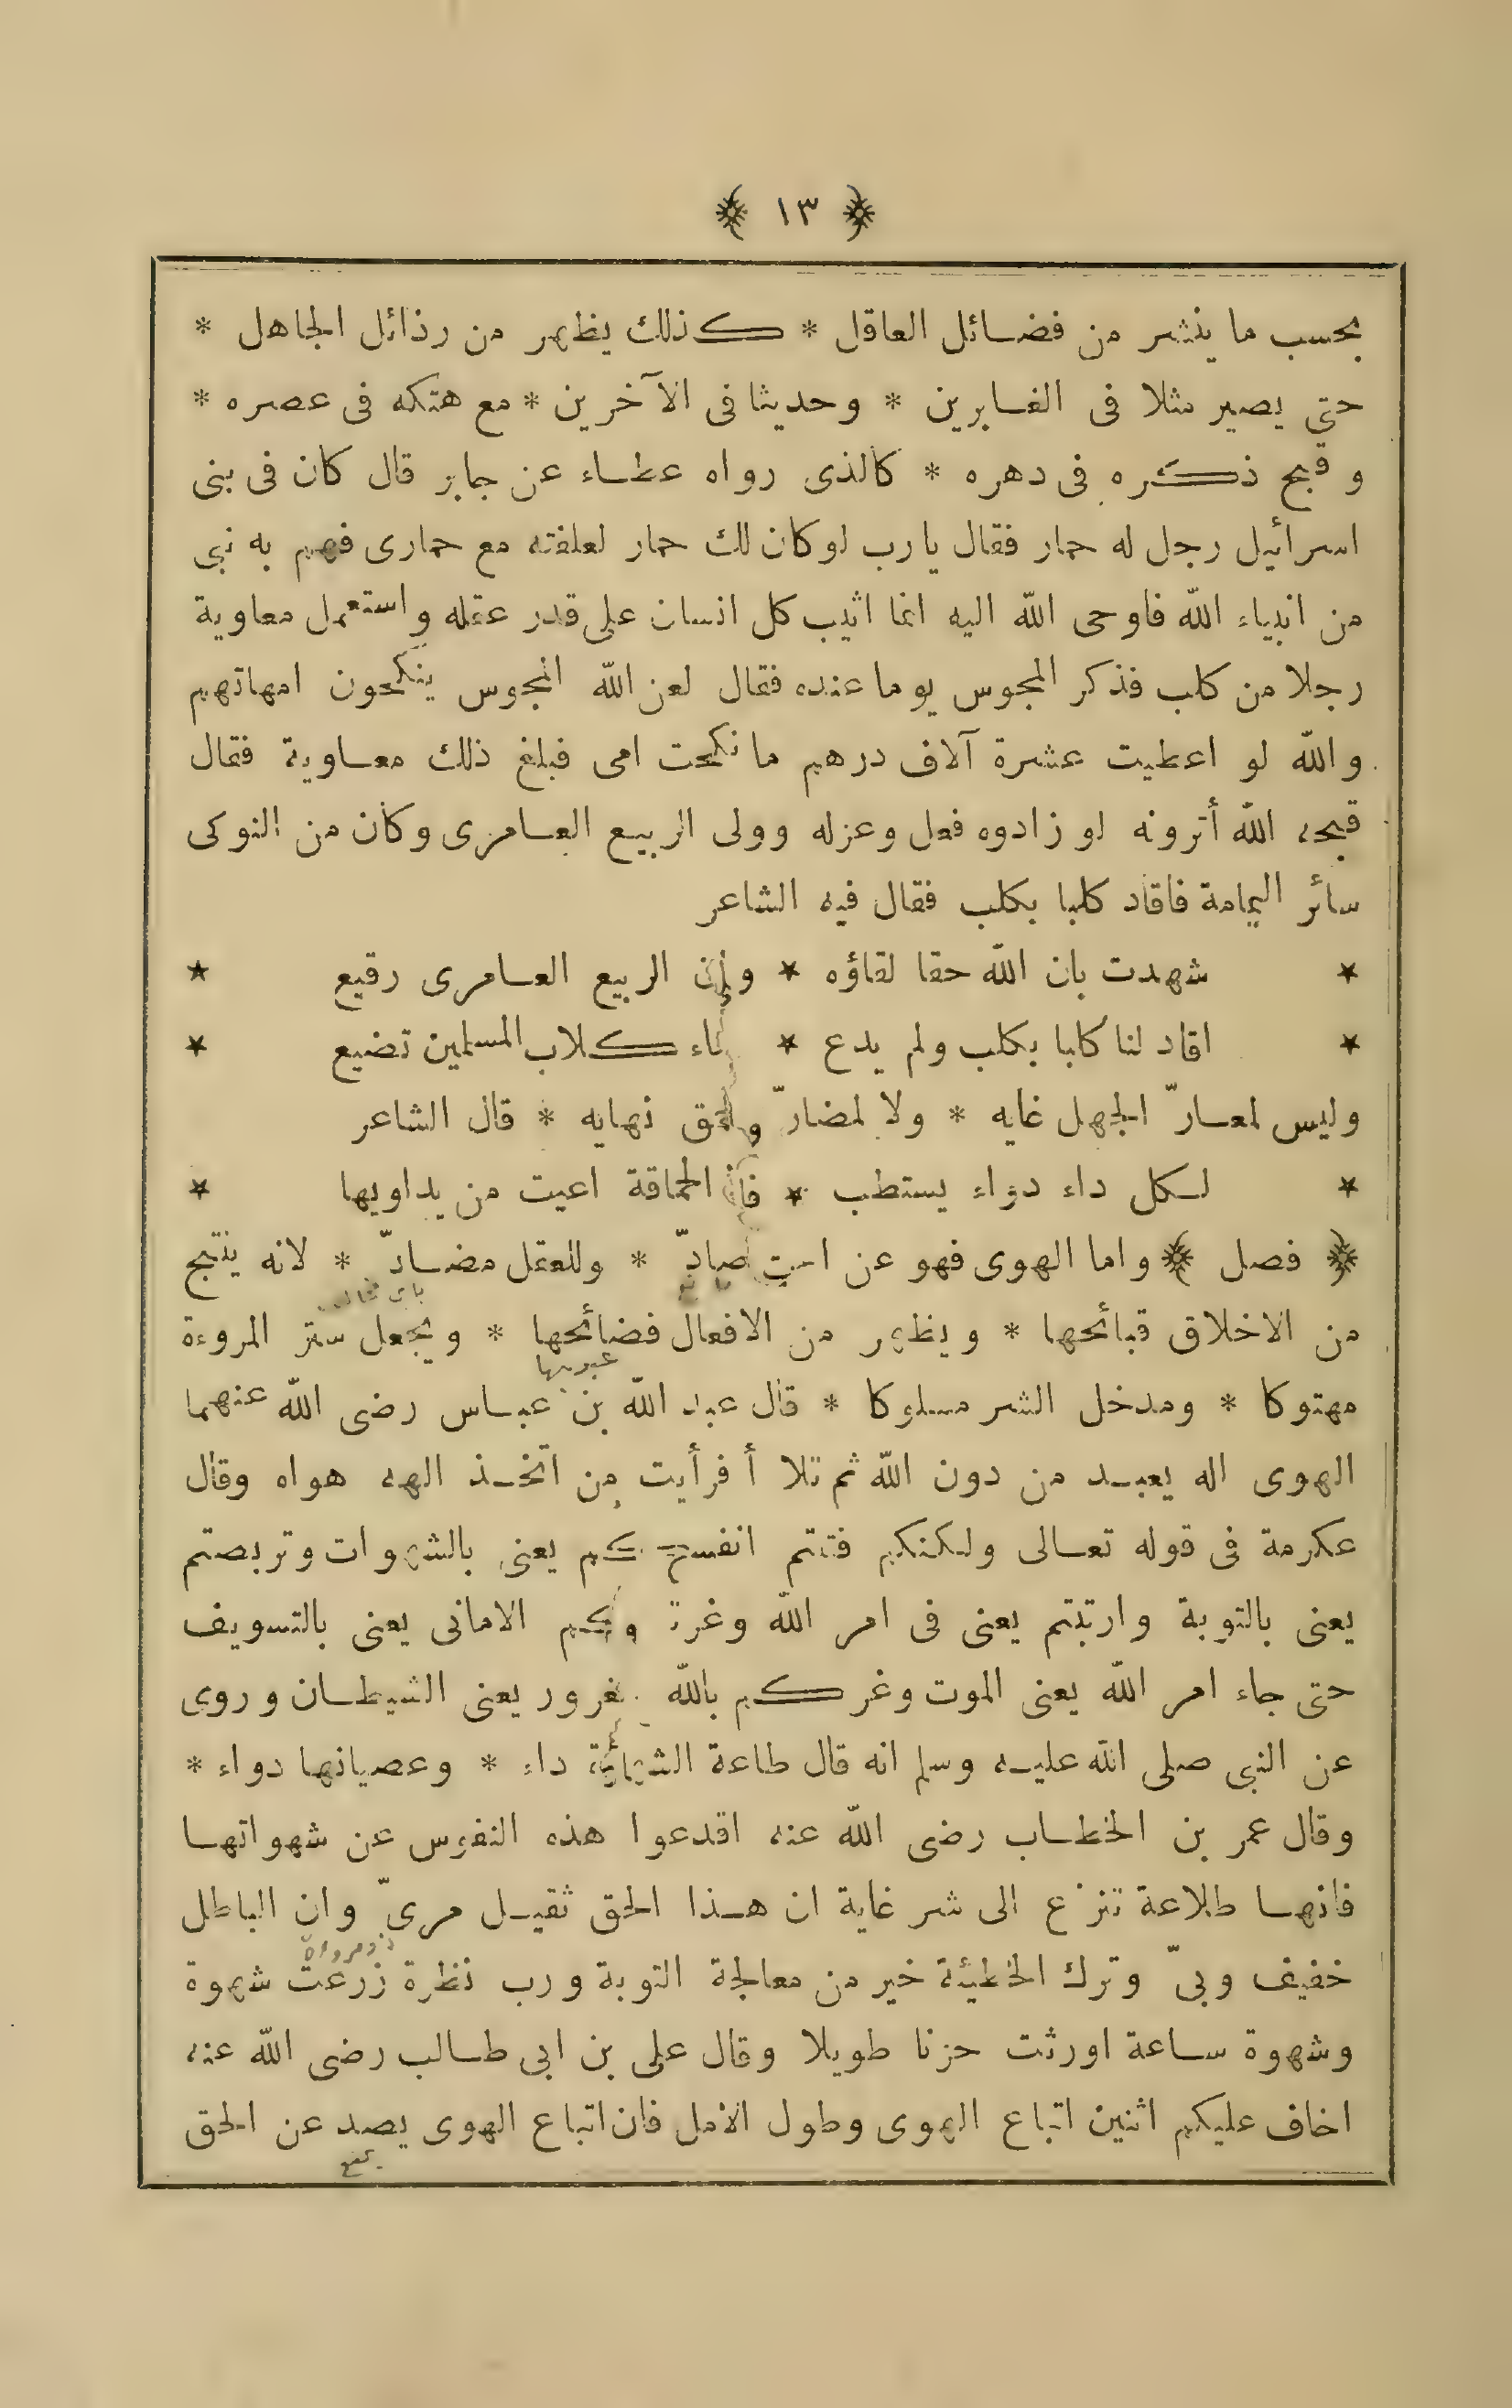 ﴿ ١٣ ﴾
بحسب ما ينشر من فضائل العاقل * كذلك يظهر من رذائل الجاهل *
حتى يصير مثلا فى الغابرين * وحديثا فى الآخرين * مع هتكه فى عصره *
وقبح ذكره فى دهره * كالذى رواه عطاء عن جابر قال كان فى بنى
اسرائيل رجل له حمار فقال يارب لوكان لك حمار لعلفته مع حمارى فهم به نبى
من انبياء الله فاوحى الله اليه انما اثيب كل انسان على قدر عقله واستعمل معاوية
رجلا من كلب فذكر المجوس يوما عنده فقال لعن الله المجوس ينكحون امهاتهم
والله لو اعطيت عشرة آلاف درهم ما نكحت امى فبلغ ذلك معاوية فقال
قبحه الله أترونه لو زادوه فعل وعزله وولى الربيع العامرى وكان من النوكى
سائر اليمامة فاقاد كلبا بكلب فقال فيه الشاعر
★ شهدت بان الله حقا لقاؤه ★ وان الربيع العامرى رقيع ★
★ اقاد لنا كلبا بكلب ولم يدع ★ كلاب المسلمين تضيع ★
وليس لمعارّ الجهل غايه * ولا لمضارّ نهايه * قال الشاعر
★ لكل داء دواء يستطب ★ فان الحماقة اعيت من يداويها ★
﴿ فصل ﴾ واما الهوى فهو عن صادّ * وللعقل مضادّ * لانه ينتج
من الاخلاق قبائحها * ويظهر من الافعال فضائحها * ويجعل ستر المروءة
مهتوكا * ومدخل الشر مسلوكا * قال عبد الله بن عباس رضى الله عنهما
الهوى اله يعبد من دون الله ثم تلا أفرأيت من اتخذ الهه هواه وقال
عكرمة فى قوله تعالى ولكنكم فتنتم انفسكم يعنى بالشهوات وتربصتم
يعنى بالتوبة وارتبتم يعنى فى امر الله وغرتكم الامانى يعنى بالتسويف
حتى جاء امر الله يعنى الموت وغركم بالله الغرور يعنى الشيطان وروى
عن النبى صلى الله عليه وسلم انه قال طاعة الشهوة داء * وعصيانها دواء *
وقال عمر بن الخطاب رضى الله عنه اقدعوا هذه النفوس عن شهواتها
فانها طلاعة تنزع الى شر غاية ان هذا الحق ثقيل مرىّ وان الباطل
خفيف وبىّ وترك الخطيئة خير من معالجة التوبة ورب نظرة زرعت شهوة
وشهوة ساعة اورثت حزنا طويلا وقال على بن ابى طالب رضى الله عنه
اخاف عليكم اثنين اتباع الهوى وطول الامل فان اتباع الهوى يصد عن الحق